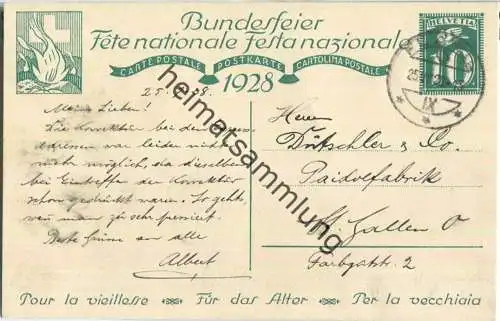 Bundesfeier
Fête nationale Festa nazionale
CARTE POSTALE POSTKARTE CARTOLIMA POSTALE
1928
HELVETIA
10
IX
heimatsammlung.de
Meine Lieben!
Die Korrektur bei den
adressen war leider nicht
mehr möglich, da dieselben
bei Eintreffen der Korrektur
schon gedruckt waren. So geht's,
wenn man zu sehr pressiert.
Beste Grüsse an alle
Albert
Herren
Dütschler & Co.
Paidolfabrik
St. Gallen O
2
Pour la vieillesse Für das Alter Per la vecchiaia